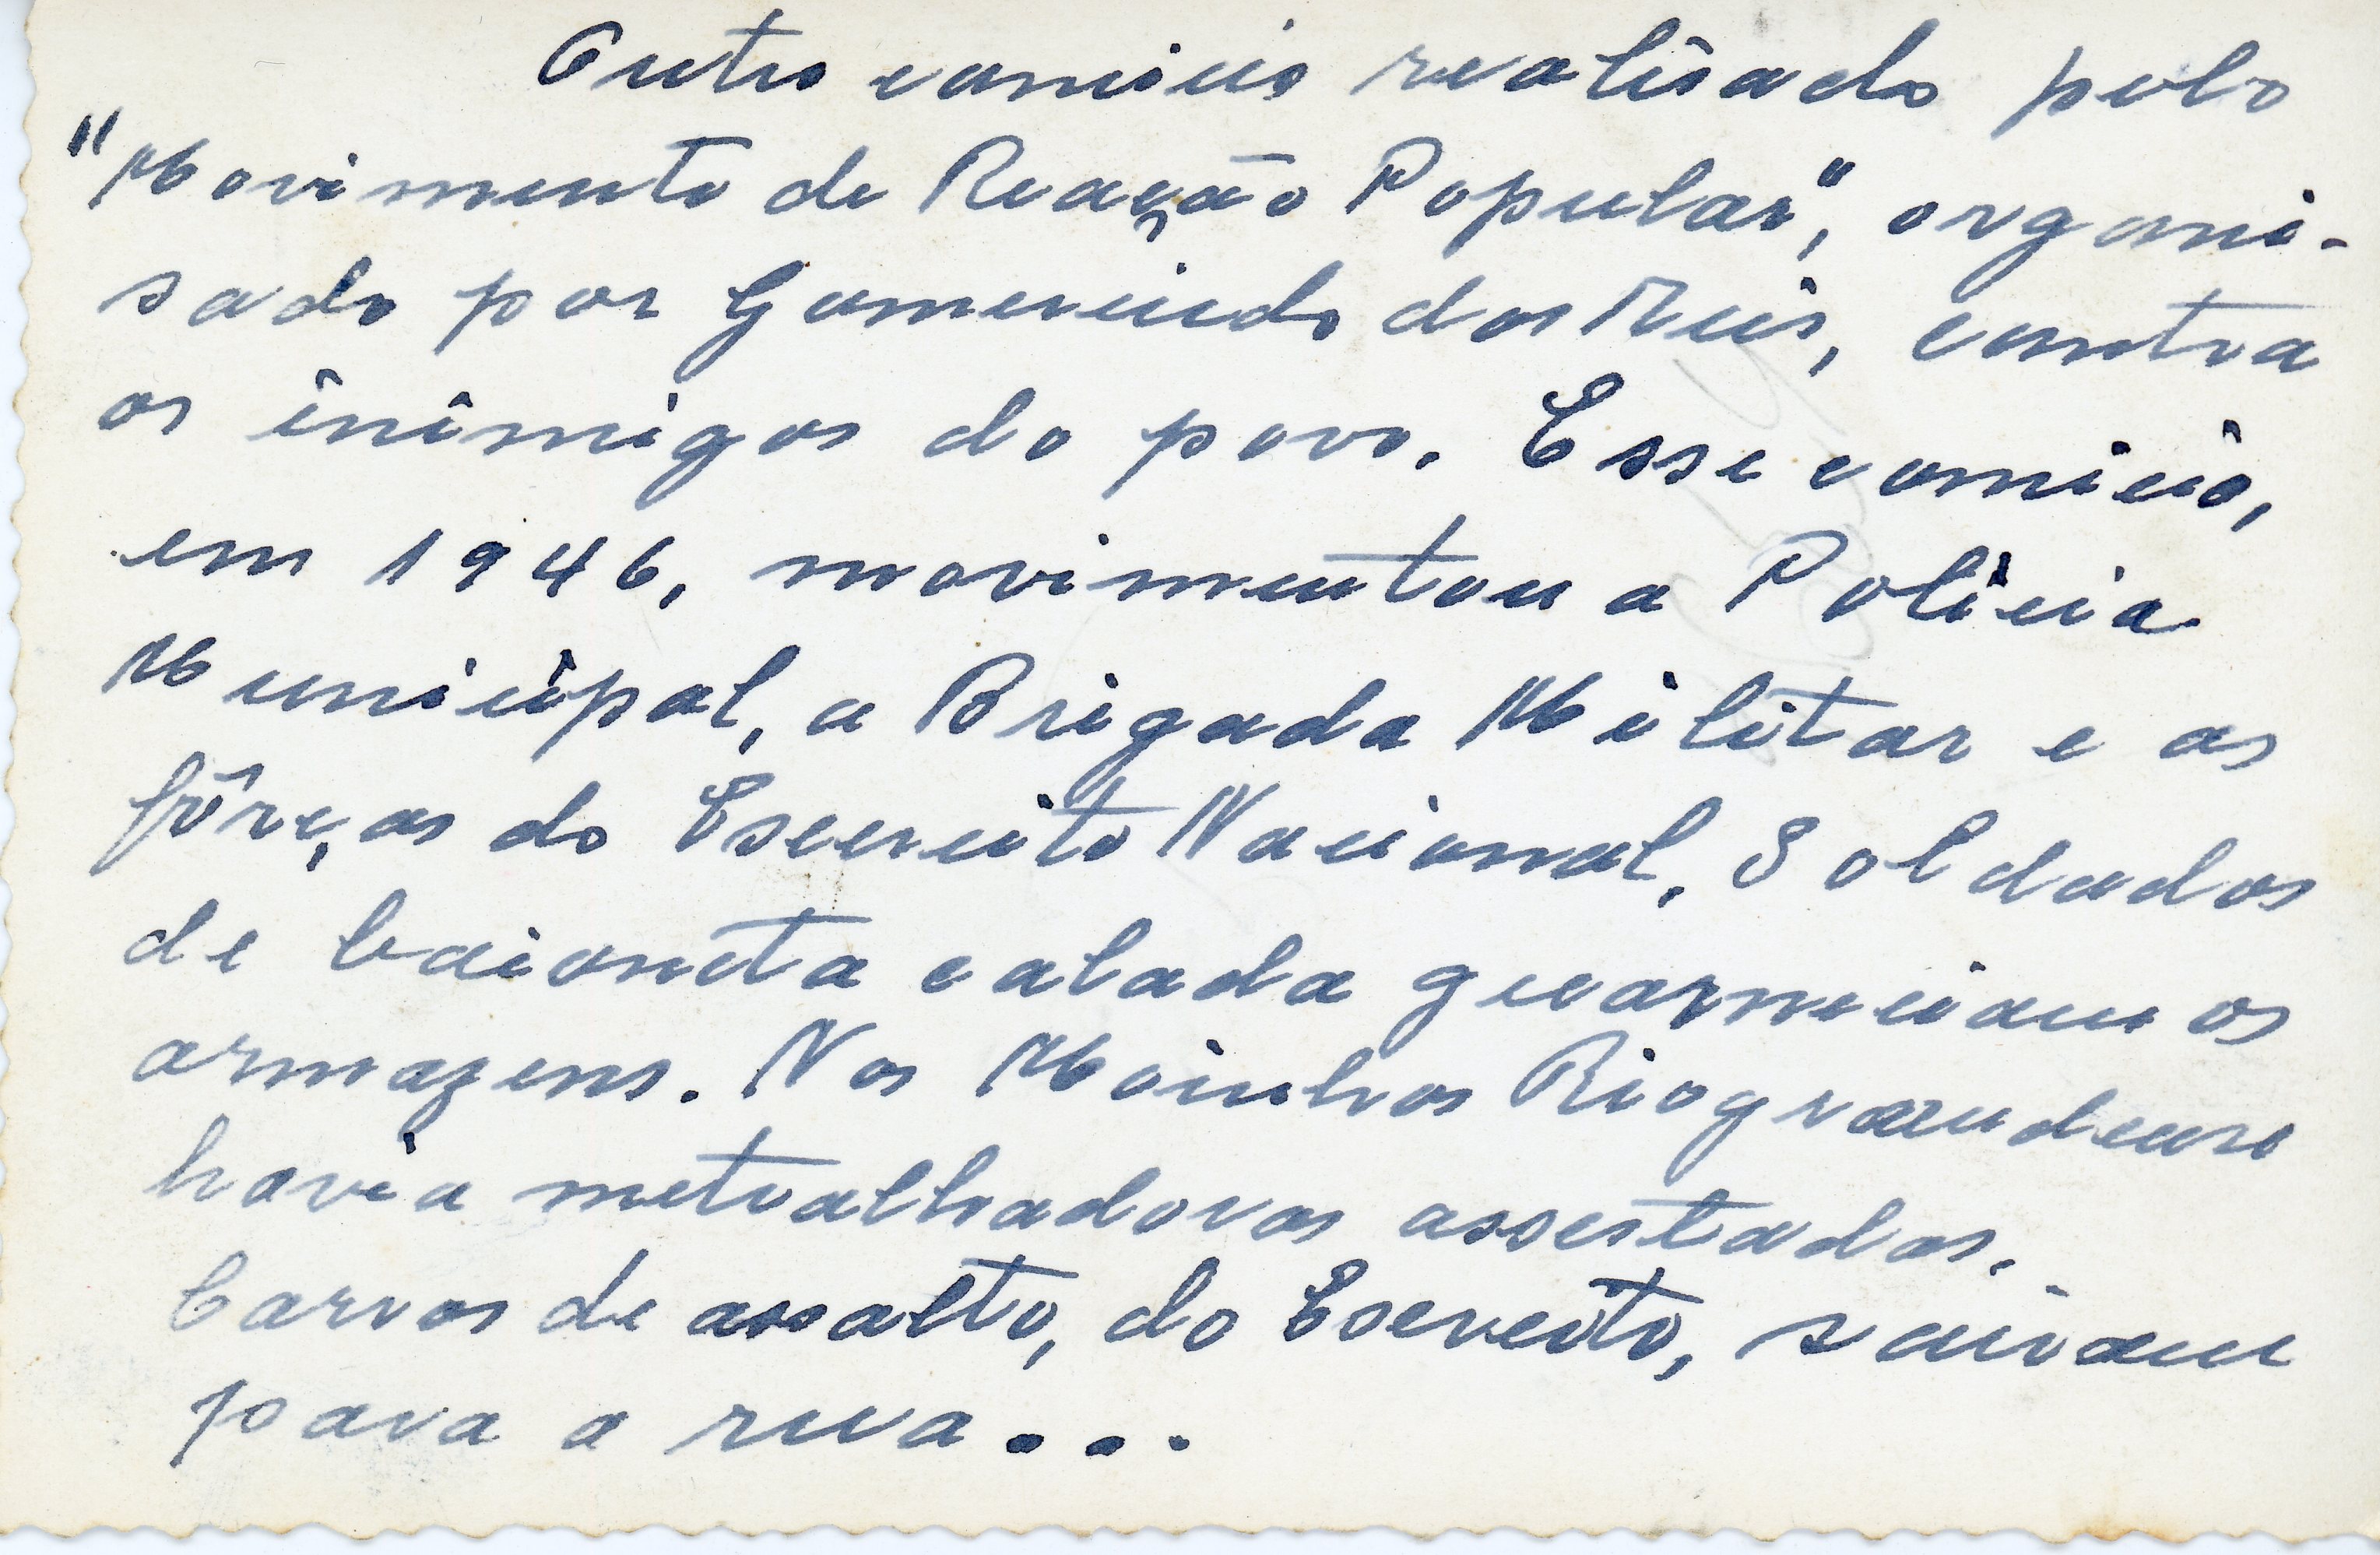 Outro comicio realisado pelo
"Movimento de Reação Popular", organi-
sado por Gomercindo dos Reis, contra
os inimigos do povo. Esse comicio,
em 1946, movimentou a Policia
Municipal, a Brigada Militar e as
fôrças do Esercito Nacional. Soldados
de baioneta calada guarneciam os
armazens. Nos Moinhos Riograndense
havia metralhadoras assestadas.
Carros de assalto, do Esercito, sairam
para a rua...